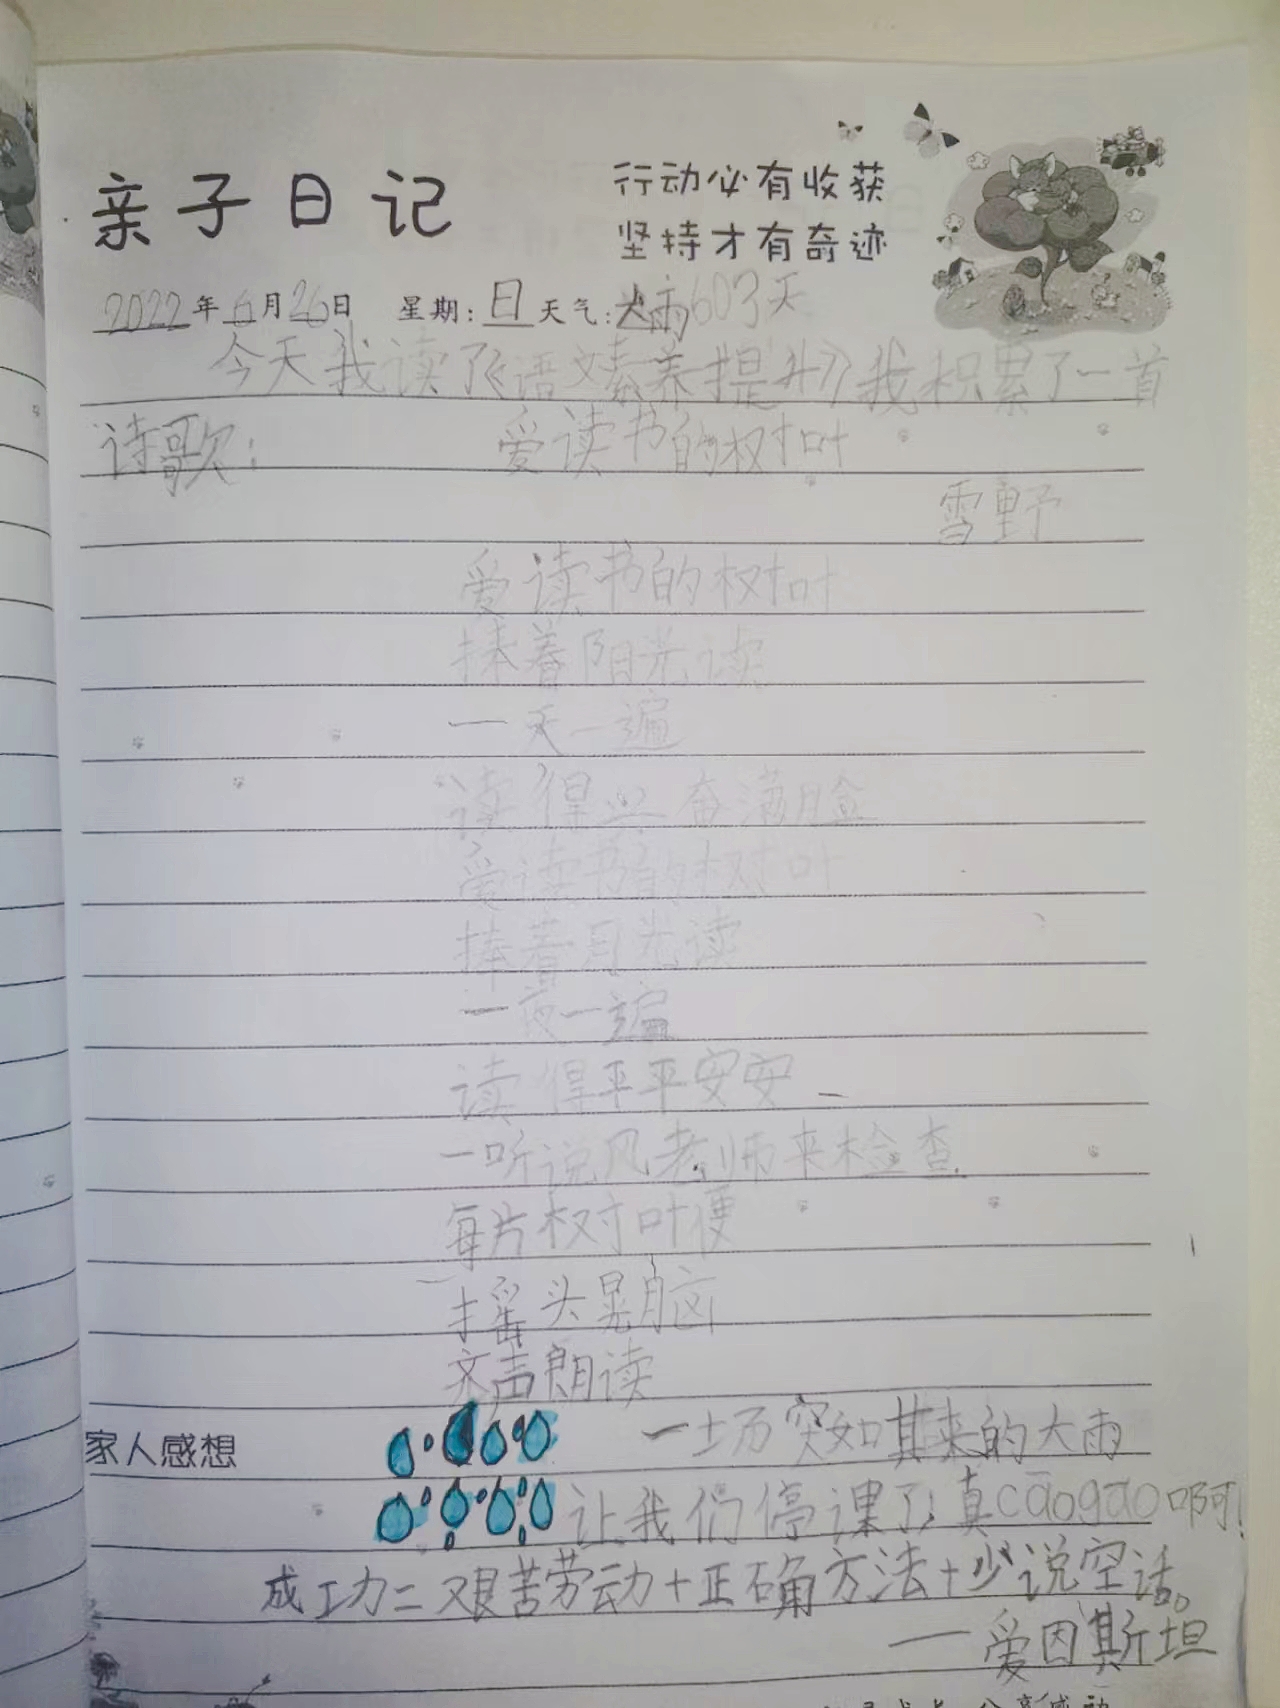 亲子日记
行动必有收获
坚持才有奇迹
2022年6月26日 星期:日 天气:大雨 603天
今天我读了《语文素养提升》我积累了一首
诗歌: 爱读书的树叶
雪野
爱读书的树叶
捧着阳光读
一天一遍
读得兴奋满脸
爱读书的树叶
捧着月光读
一夜一遍
读得平平安安
一听说风老师来检查
每片树叶便
摇头晃脑
齐声朗读
家人感想 一场突如其来的大雨
让我们停课了,真cāogāo啊!
成功=艰苦劳动+正确方法+少说空话。
——爱因斯坦